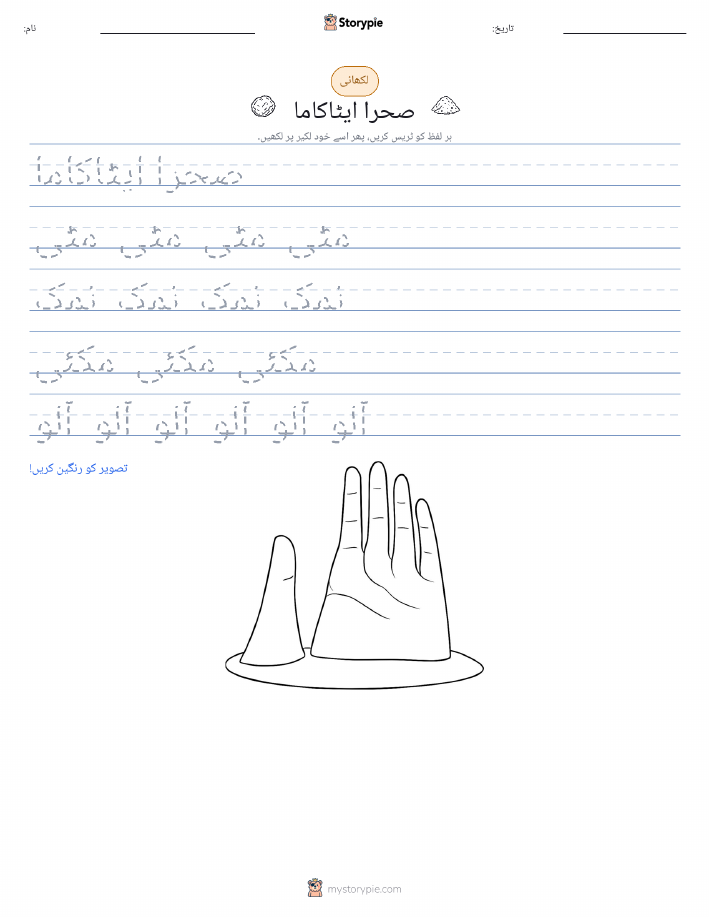 Storypie
نام:
تاریخ:
لکھائی
صحرا ایٹاکاما
ہر لفظ کو ٹریس کریں، پھر اسے خود لکیر پر لکھیں۔
صحرا ایٹاکاما
مٹی مٹی مٹی مٹی
نمک نمک نمک نمک
مکئی مکئی مکئی
آلو آلو آلو آلو آلو آلو
تصویر کو رنگین کریں!
mystorypie.com